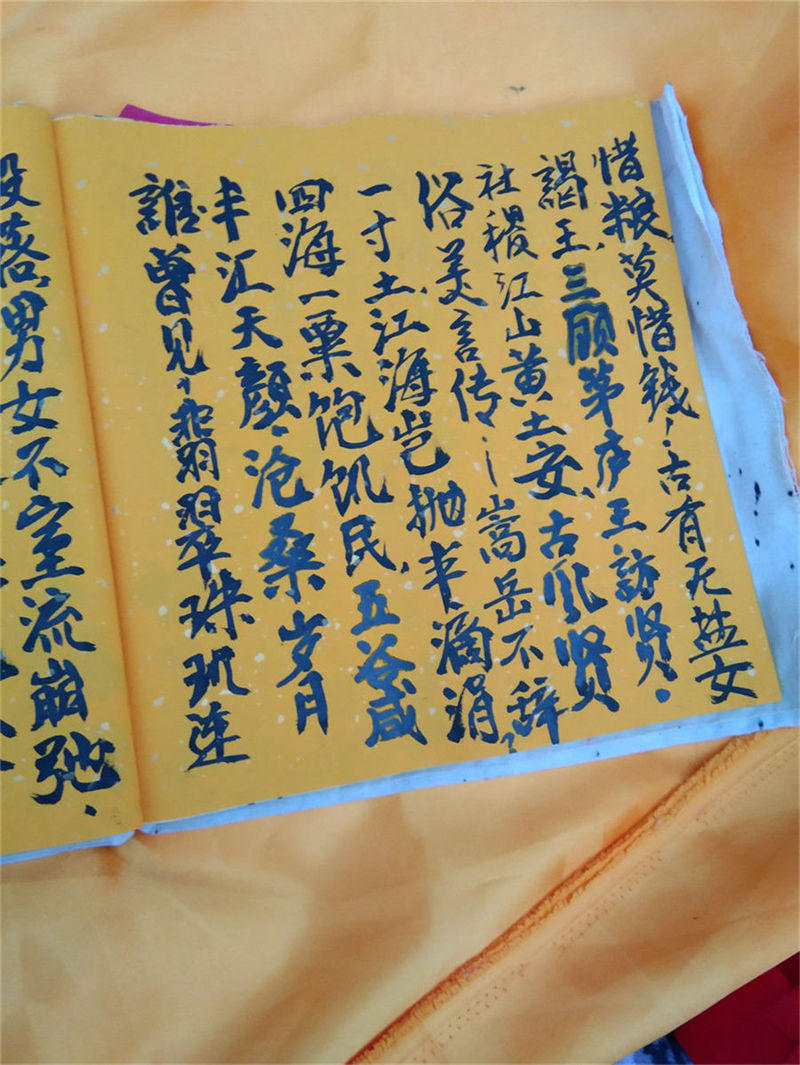 惜粮莫惜钱，古有无盐女
謁王，三顾茅庐王訪贤．
社稷江山黄土安，古风贤
俗美言传，嵩岳不辞
一寸土，江海岂抛半滴涓，
四海一粟饱饥民，五谷咸
丰汇天顔，沧桑岁月
誰曾见，翡翠珠玑连
没落，男女不室流崩弛．